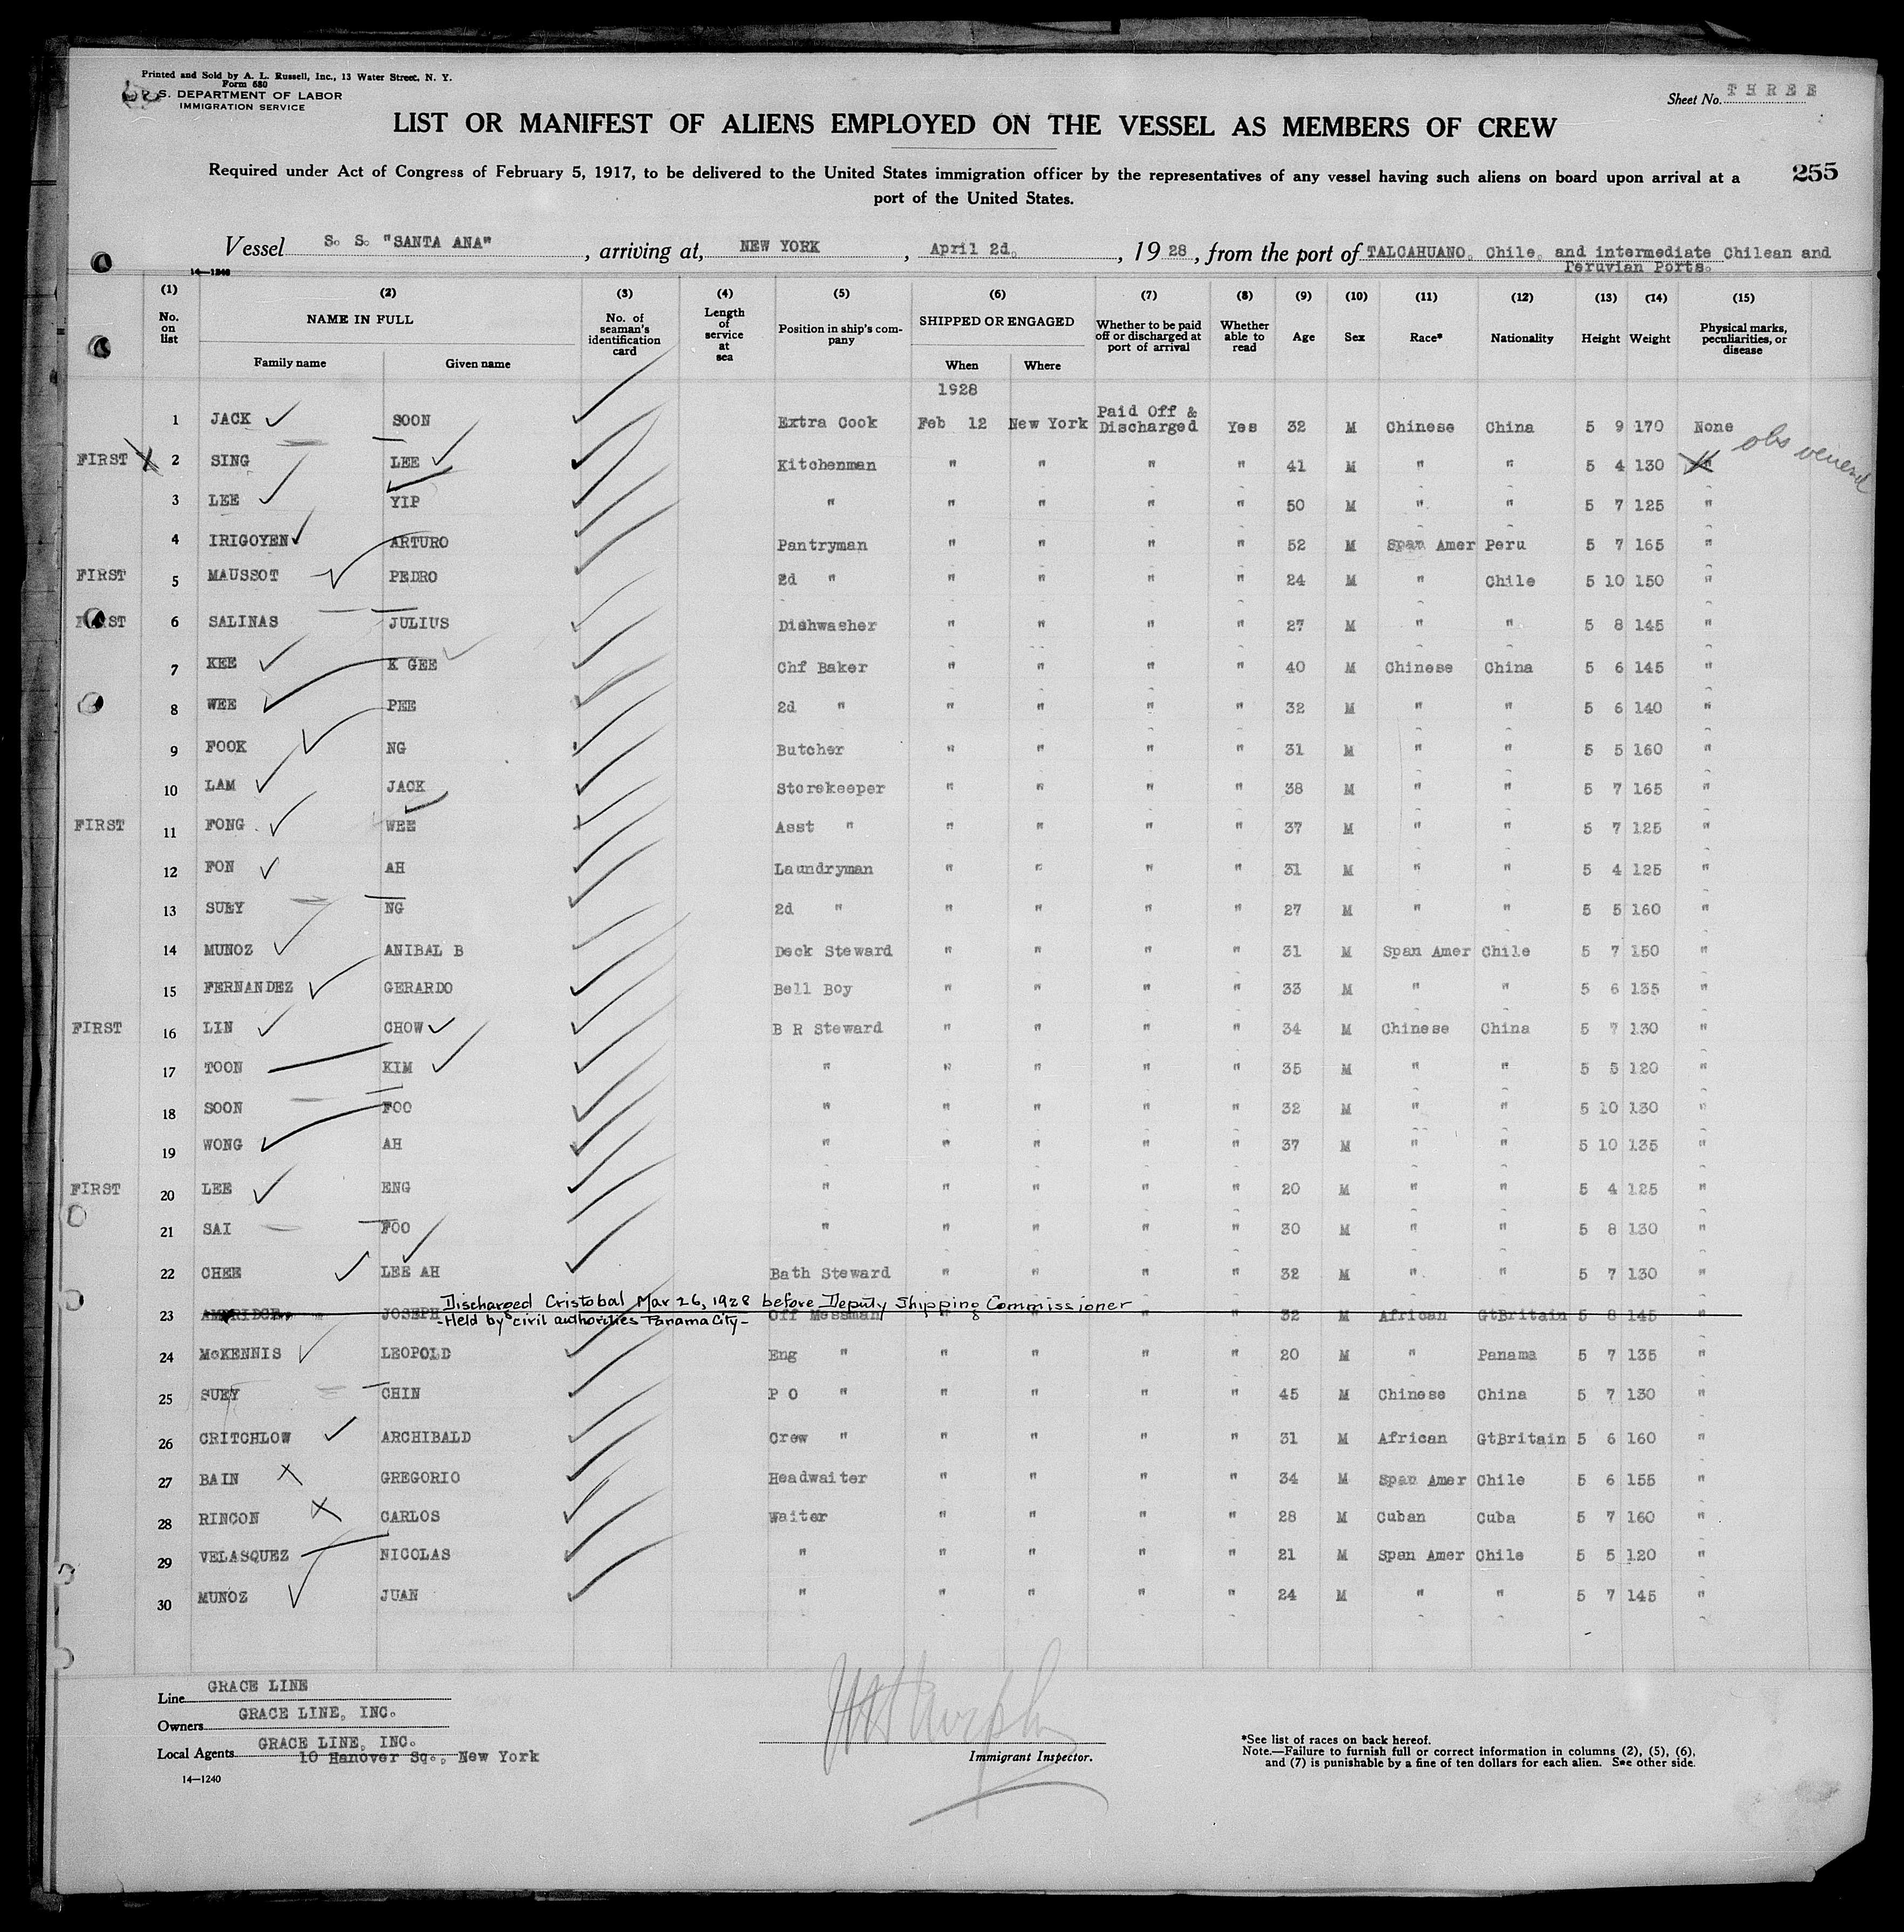 Printed and Sold by A. L. Russell, Inc., 13 Water Street, N. Y.
Form 680
U. S. DEPARTMENT OF LABOR
IMMIGRATION SERVICE
Sheet No. THREE
LIST OR MANIFEST OF ALIENS EMPLOYED ON THE VESSEL AS MEMBERS OF CREW
Required under Act of Congress of February 5, 1917, to be delivered to the United States immigration officer by the representatives of any vessel having such aliens on board upon arrival at a
port of the United States.
255
Vessel S. S. "SANTA ANA", arriving at, NEW YORK, April 2d., 1928, from the port of TALCAHUANO. Chile. and intermediate Chilean and
Peruvian Ports.
14—1240
(1) (2) (3) (4) (5) (6) (7) (8) (9) (10) (11) (12) (13) (14) (15)
No. on list NAME IN FULL Family name Given name No. of seaman's identification card Length of service at sea Position in ship's company SHIPPED OR ENGAGED When Where Whether to be paid off or discharged at port of arrival Whether able to read Age Sex Race* Nationality Height Weight Physical marks, peculiarities, or disease
1928
1 JACK SOON Extra Cook Feb 12 New York Paid Off & Discharged Yes 32 M Chinese China 5 9 170 None
FIRST 2 SING LEE Kitchenman " " " " 41 M " " 5 4 130 " obs venereal
3 LEE YIP " " " " " 50 M " " 5 7 125 "
4 IRIGOYEN ARTURO Pantryman " " " " 52 M Span Amer Peru 5 7 165 "
FIRST 5 MAUSSOT PEDRO 2d " " " " " 24 M " Chile 5 10 150 "
FIRST 6 SALINAS JULIUS Dishwasher " " " " 27 M " " 5 8 145 "
7 KEE K GEE Chf Baker " " " " 40 M Chinese China 5 6 145 "
8 WEE PEE 2d " " " " " 32 M " " 5 6 140 "
9 FOOK NG Butcher " " " " 31 M " " 5 5 160 "
10 LAM JACK Storekeeper " " " " 38 M " " 5 7 165 "
FIRST 11 FONG WEE Asst " " " " " 37 M " " 5 7 125 "
12 FON AH Laundryman " " " " 31 M " " 5 4 125 "
13 SUEY NG 2d " " " " " 27 M " " 5 5 160 "
14 MUNOZ ANIBAL B Deck Steward " " " " 31 M Span Amer Chile 5 7 150 "
15 FERNANDEZ GERARDO Bell Boy " " " " 33 M " " 5 6 135 "
FIRST 16 LIN CHOW B R Steward " " " " 34 M Chinese China 5 7 130 "
17 TOON KIM " " " " " 35 M " " 5 5 120 "
18 SOON FOO " " " " " 32 M " " 5 10 130 "
19 WONG AH " " " " " 37 M " " 5 10 135 "
FIRST 20 LEE ENG " " " " " 20 M " " 5 4 125 "
21 SAI FOO " " " " " 30 M " " 5 8 130 "
22 CHEE LEE AH Bath Steward " " " " 32 M " " 5 7 130 "
Discharged Cristobal Mar 26, 1928 before Deputy Shipping Commissioner
23 AMBRIDGE JOSEPH Off Messman " " " " 32 M African GtBritain 5 8 145 "
-Held by civil authorities Panama City-
24 McKENNIS LEOPOLD Eng " " " " " 20 M " Panama 5 7 135 "
25 SUEY CHIN P O " " " " " 45 M Chinese China 5 7 130 "
26 CRITCHLOW ARCHIBALD Crew " " " " " 31 M African GtBritain 5 6 160 "
27 BAIN GREGORIO Headwaiter " " " " 34 M Span Amer Chile 5 6 155 "
28 RINCON CARLOS Waiter " " " " 28 M Cuban Cuba 5 7 160 "
29 VELASQUEZ NICOLAS " " " " " 21 M Span Amer Chile 5 5 120 "
30 MUNOZ JUAN " " " " " 24 M " " 5 7 145 "
Line GRACE LINE
Owners GRACE LINE, INC.
Local Agents GRACE LINE, INC.
10 Hanover Sq., New York
14—1240
Immigrant Inspector.
*See list of races on back hereof.
Note.—Failure to furnish full or correct information in columns (2), (5), (6),
and (7) is punishable by a fine of ten dollars for each alien. See other side.